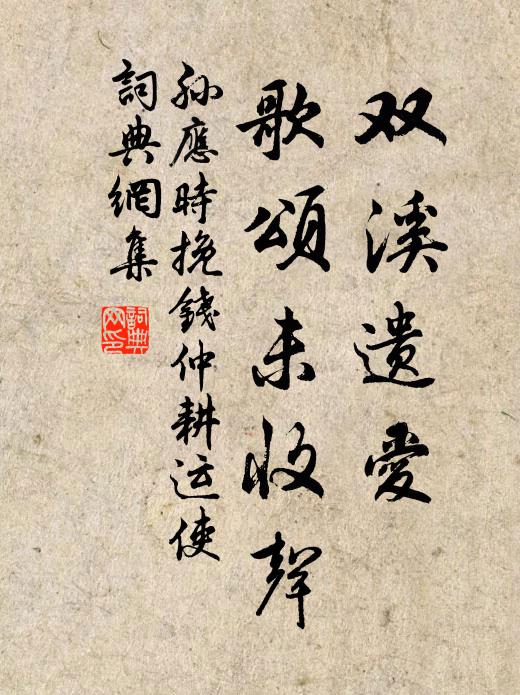 双溪遗爱
歌頌未收聲
孙應時挽錢仲耕运使
詞典網集
詞典网印